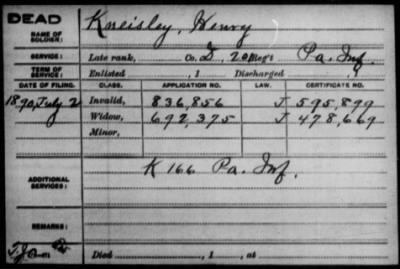 DEAD
NAME OF SOLDIER: Kneisley, Henry
SERVICE: Late rank, Co. I, 201 Reg't Pa. Inf.
TERM OF SERVICE: Enlisted , 1 Discharged , 1
DATE OF FILING. CLASS. APPLICATION NO. LAW. CERTIFICATE NO.
1890, July 2 Invalid, 836,856 J 595,899
Widow, 692,375 J 478,669
Minor,
ADDITIONAL SERVICES: K 166 Pa. Inf.
REMARKS:
Died , 1 , at